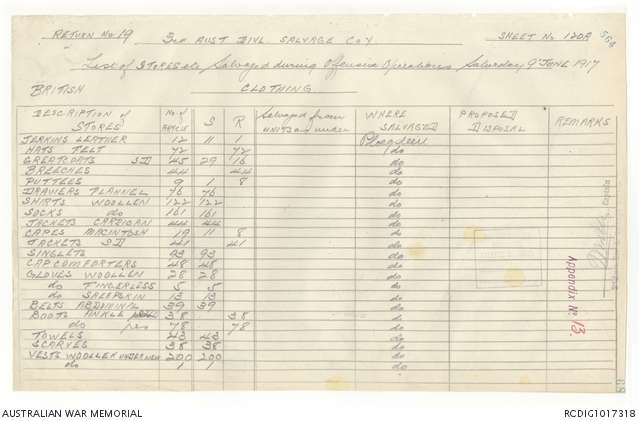 RETURN No 19 3RD AUST DIVL. SALVAGE COY SHEET No. 120A
List of STORES etc Salvaged during Offensive Operations Saturday 9 JUNE 1917
BRITISH CLOTHING.
DESCRIPTION of STORES No. of Articles S R Salvaged from UNITS as under WHERE SALVAGED PROPOSED DISPOSAL REMARKS
JERKINS LEATHER 12 11 1 Ploegsteert
HATS FELT 72 72 do
GREATCOATS SD 45 29 16 do
BREECHES 44 44 do
PUTTEES 9 1 8 do
DRAWERS FLANNEL 76 76 do
SHIRTS WOOLLEN 122 122 do
SOCKS do 161 161 do
JACKETS CARDIGAN 44 44 do
CAPES MACINTOSH 19 11 8 do
JACKETS SD 41 41 do
SINGLETS 93 93 do
CAP COMFORTERS 48 48 do
GLOVES WOOLLEN 28 28 do
do FINGERLESS 5 5 do
do SHEEPSKIN 13 13 do
BELTS ABDOMINAL 39 39 do
BOOTS ANKLE 38 38 do
do prs 78 78 do
TOWELS 43 43 do
SCARVES 38 38 do
VESTS WOOLLEN UNDER 200 200 do
do 1 1 do
Appendix No. 13.
AUSTRALIAN WAR MEMORIAL RCDIG1017318